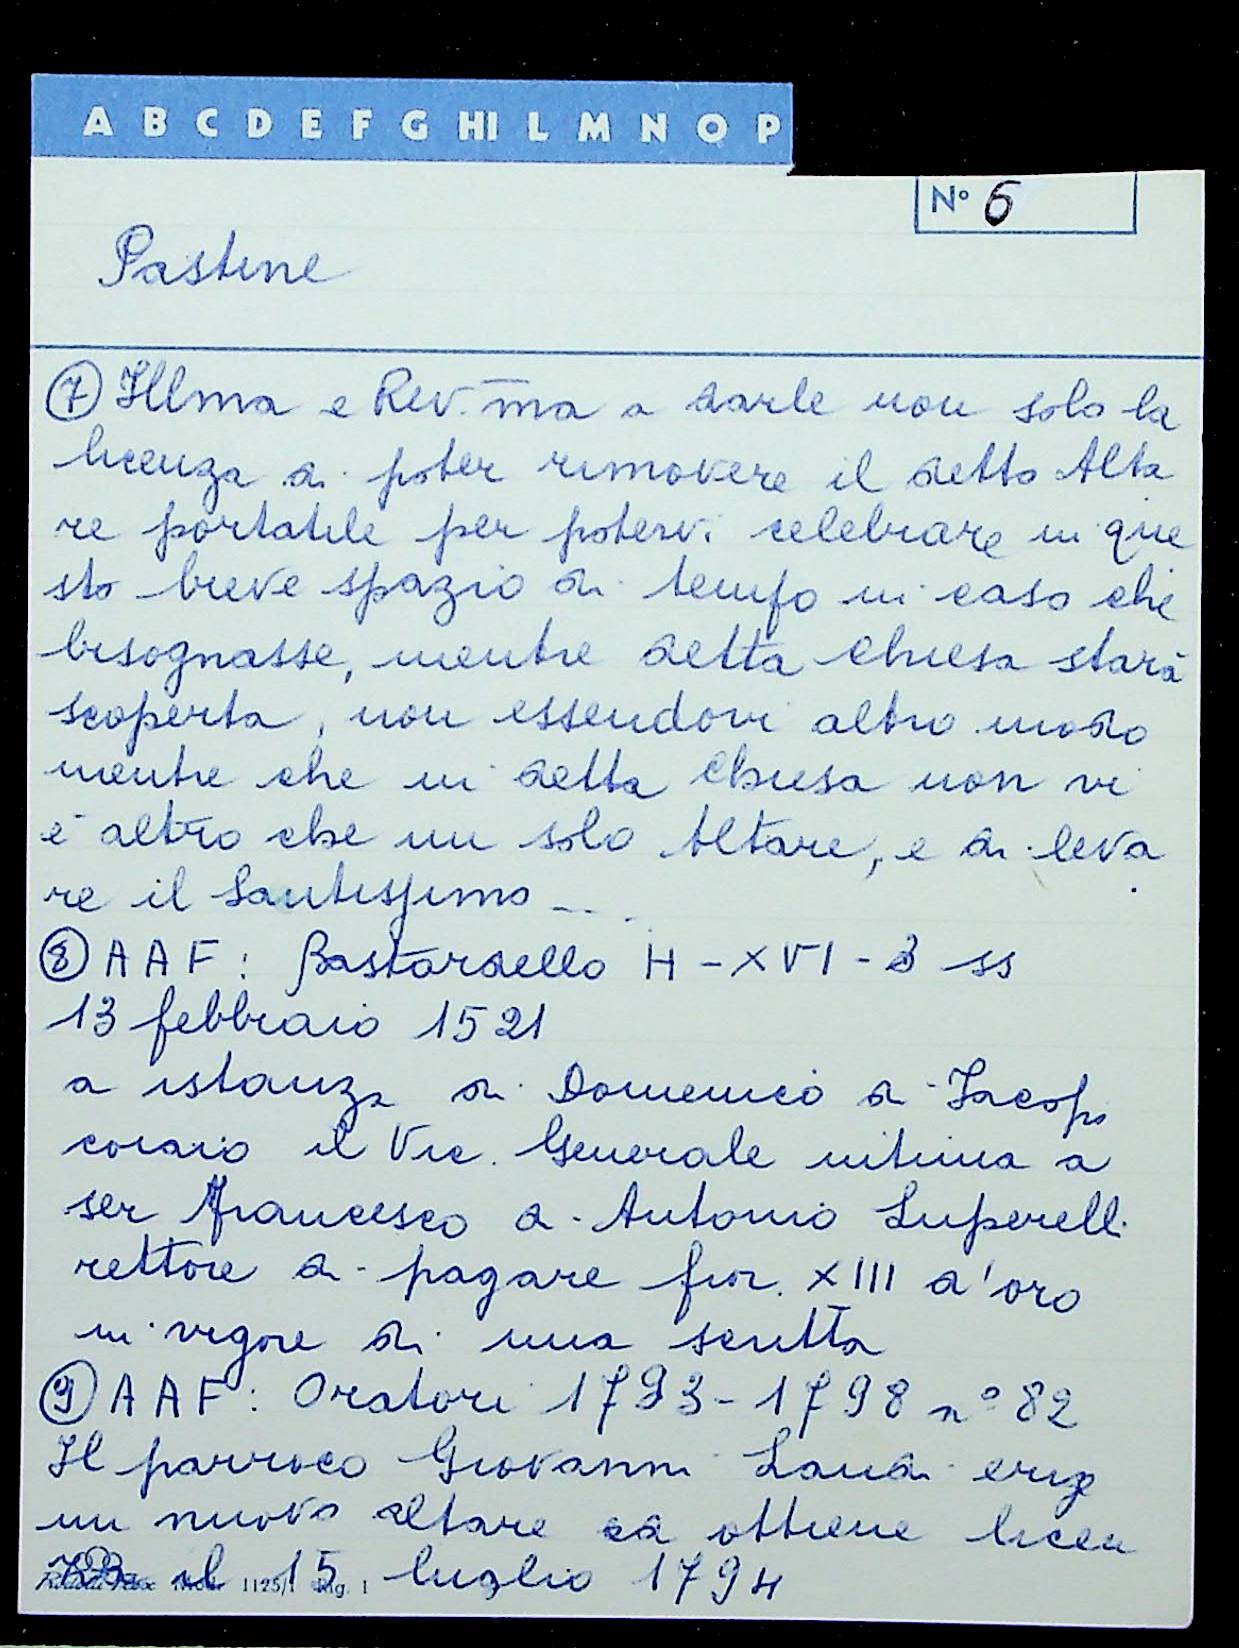 A B C D E F G HI L M N O P
N° 6
Pastine
7 Illma e Rev.ma a darle non solo la
licenza di poter rimovere il detto Alta
re portatile per potervi celebrare in que
sto breve spazio di tempo in caso che
bisognasse, mentre detta Chiesa starà
scoperta, non essendovi altro modo
mentre che in detta Chiesa non vi
è altro che un solo Altare, e di leva
re il Santissimo ...
8 AAF: Bastardello H - XVI - 3 ss
13 febbraio 1521
a istanza di Domenico di Jacopo
coiaio il Vic. Generale intima a
ser Francesco di Antonio Luperelli
rettore di pagare fior. XIII d'oro
in vigore di una scritta
9 AAF: Oratori 1793-1798 n° 82
Il parroco Giovanni Landi erige
un nuovo altare ed ottiene licen
za il 15 luglio 1794
1125/1 Rig. 1